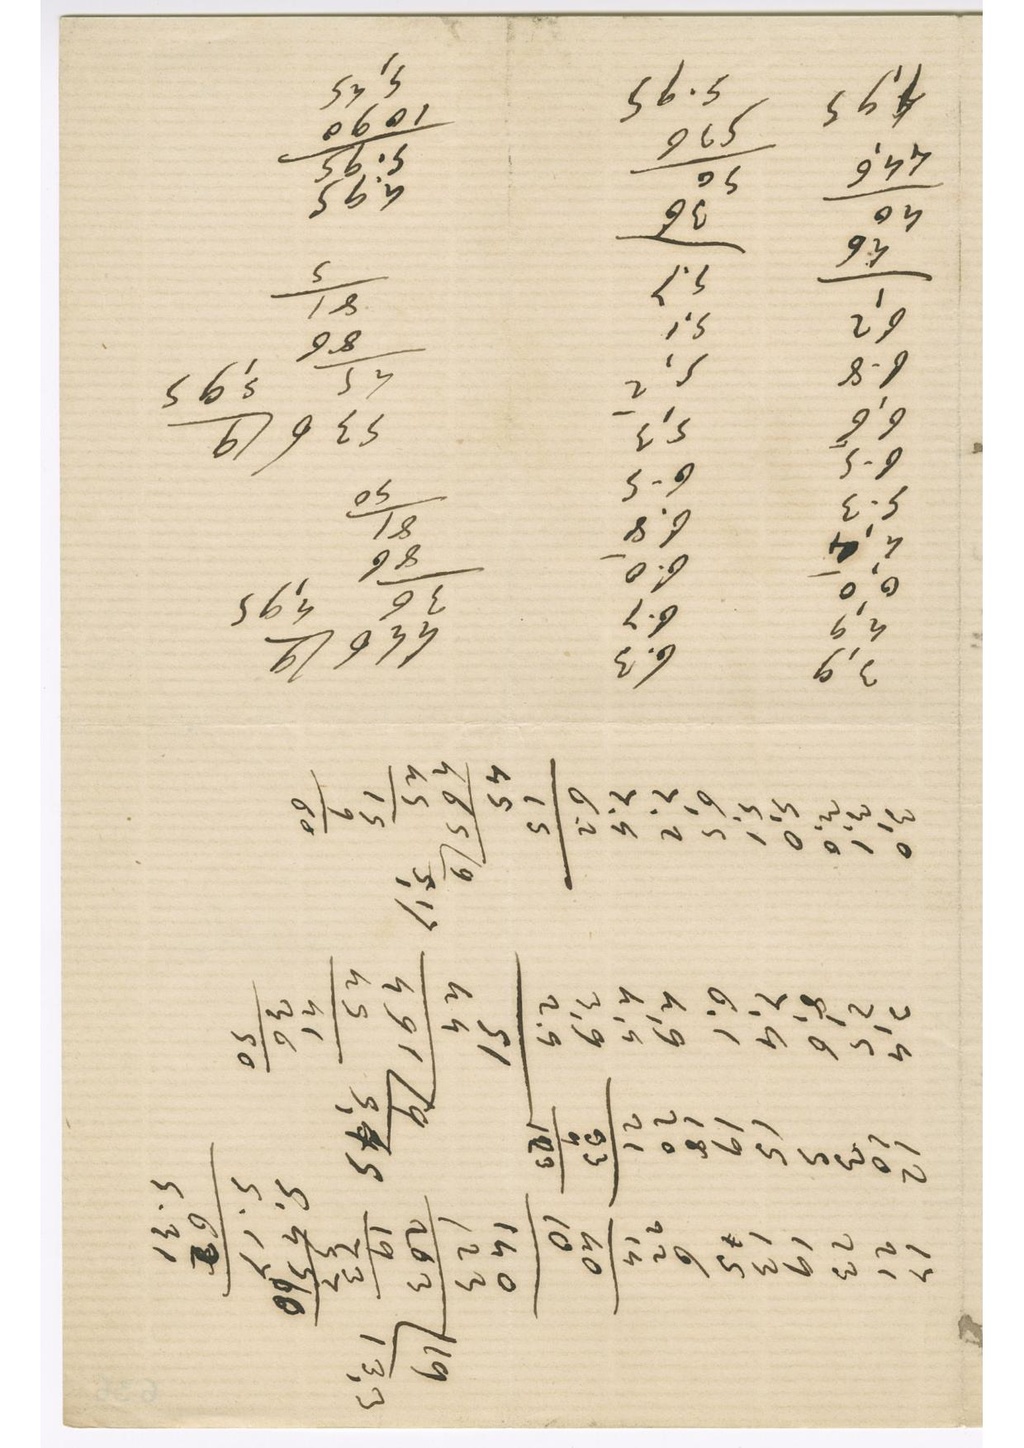 3.9
4.9
0.0
4.4
5.3
6.5
6.6
6.8
6.2
46
40
44.6
4.95
6.3
6.7
6.0
6.8
6.5
5.3
5.2
5.1
5.7
36
50
536
5.95
446 /9
36 4.95
86
81
50
536 /9
45 5.95
86
81
5
4.95
5.95
10.90
5.45
3.0
3.1
3.0
5.0
5.1
6.5
7.2
7.4
6.2
15
45
465 /9
45 5.1
15
9
60
4.9
4.5
3.9
51
44
491 /9
45 5.45
41
36
50
12
10
3
5
15
19
18
20
21
33
9
123
17
12
23
19
13
22
14
40
10
140
123
263 /19
19 13.
73
57